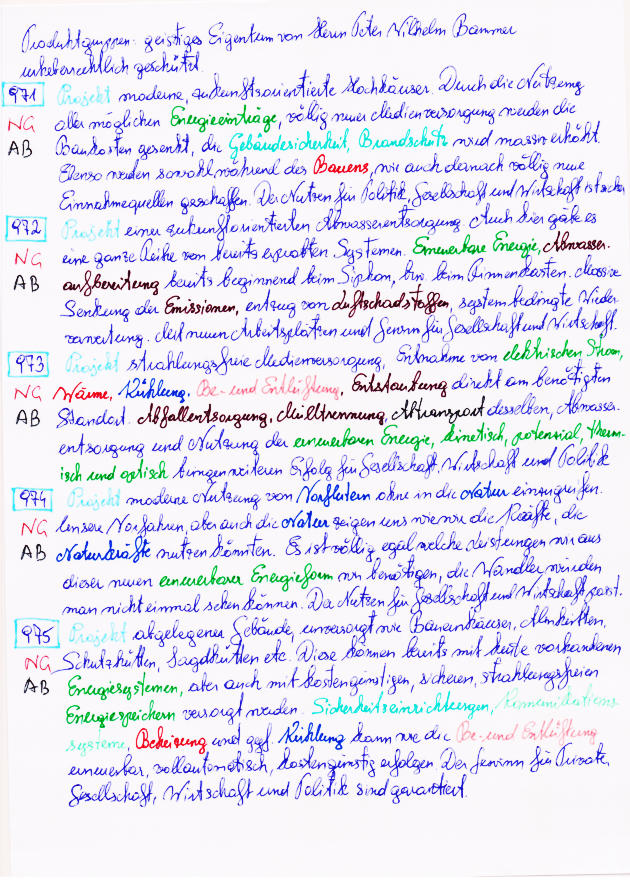 Produktgruppen: geistiges Eigentum von Herrn Peter Wilhelm Bammer
urheberrechtlich geschützt.
971 Projekt moderne, zukunftsorientierte Hochhäuser. Durch die Nutzung
NG aller möglichen Energieeinträge, völlig neuer Medienversorgung werden die
AB Baukosten gesenkt, die Gebäudesicherheit, Brandschutz wird massiv erhöht.
Ebenso werden sowohl während des Bauens, wie auch danach völlig neue
Einnahmequellen geschaffen. Der Nutzen für Politik, Gesellschaft und Wirtschaft ist sicher
972 Projekt einer zukunftorientierten Abwasserentsorgung. Auch hier gäbe es
NG eine ganze Reihe von bereits erprobten Systemen. Erneuerbare Energie, Abwasser-
AB aufbereitung bereits beginnend beim Siphon, bzw. beim Rinnenkasten. Massive
Senkung der Emissionen, entzug von Luftschadstoffen, system bedingte Wieder-
verwertung. Mit neuen Arbeitsplätzen und Gewinn für Gesellschaft und Wirtschaft.
973 Projekt strahlungsfreie Medienversorgung, Entnahme von elektrischen Strom,
NG Wärme, Kühlung, Be- und Entlüftung, Entstaubung direkt am benötigten
AB Standort. Abfallentsorgung, Mülltrennung, Abtransport desselben, Abwasser-
entsorgung und Nutzung der erneuerbaren Energie, kinetisch, potenzial, therm-
isch und optisch bringen weiteren Erfolg für Gesellschaft, Wirtschaft und Politik
974 Projekt moderne Nutzung von Vorflutern ohne in die Natur einzugreifen.
NG Unsere Vorfahren, aber auch die Natur zeigen uns wie wir die Kräfte, die
AB Naturkräfte nutzen könnten. Es ist völlig egal welche Leistungen wir aus
dieser neuen erneuerbarer Energieform wir benötigen, die Wandler würden
man nicht einmal sehen können. Der Nutzen für Gesellschaft und Wirtschaft passt.
975 Projekt abgelegener Gebäude, unversorgt wie Bauernhäuser, Almhütten,
NG Schutzhütten, Jagdhütten etc. Diese können bereits mit heute vorhandenen
AB Energiesystemen, aber auch mit kostengünstigen, sicheren, strahlungsfreien
Energiespeichern versorgt werden. Sicherheitseinrichtungen, Kommunikations-
systeme, Beheizung und ggf. Kühlung kann wie die Be- und Entlüftung
erneuerbar, vollautomatisch, kostengünstig erfolgen. Der Gewinn für Private,
Gesellschaft, Wirtschaft und Politik sind garantiert.